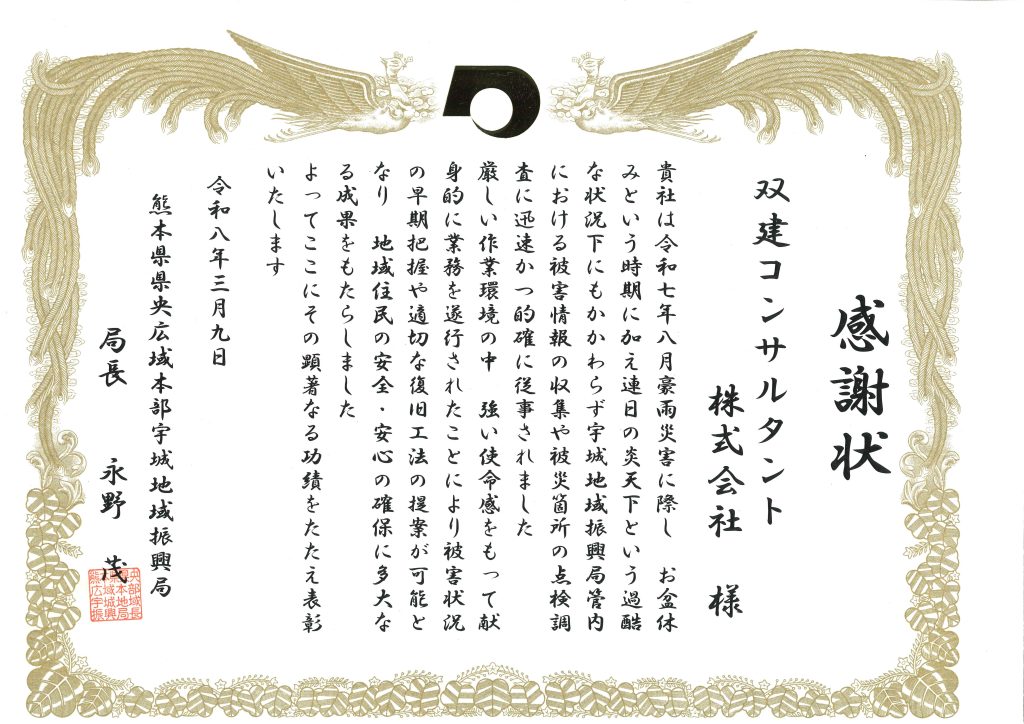 感謝状
双建コンサルタント
株式会社 様
貴社は令和七年八月豪雨災害に際し お盆休
みという時期に加え連日の炎天下という過酷
な状況下にもかかわらず宇城地域振興局管内
における被害情報の収集や被災箇所の点検調
査に迅速かつ的確に従事されました
厳しい作業環境の中 強い使命感をもって献
身的に業務を遂行されたことにより被害状況
の早期把握や適切な復旧工法の提案が可能と
なり 地域住民の安全・安心の確保に多大な
る成果をもたらしました
よってここにその顕著なる功績をたたえ表彰
いたします
令和八年三月九日
熊本県県央広域本部宇城地域振興局
局長 永野 茂